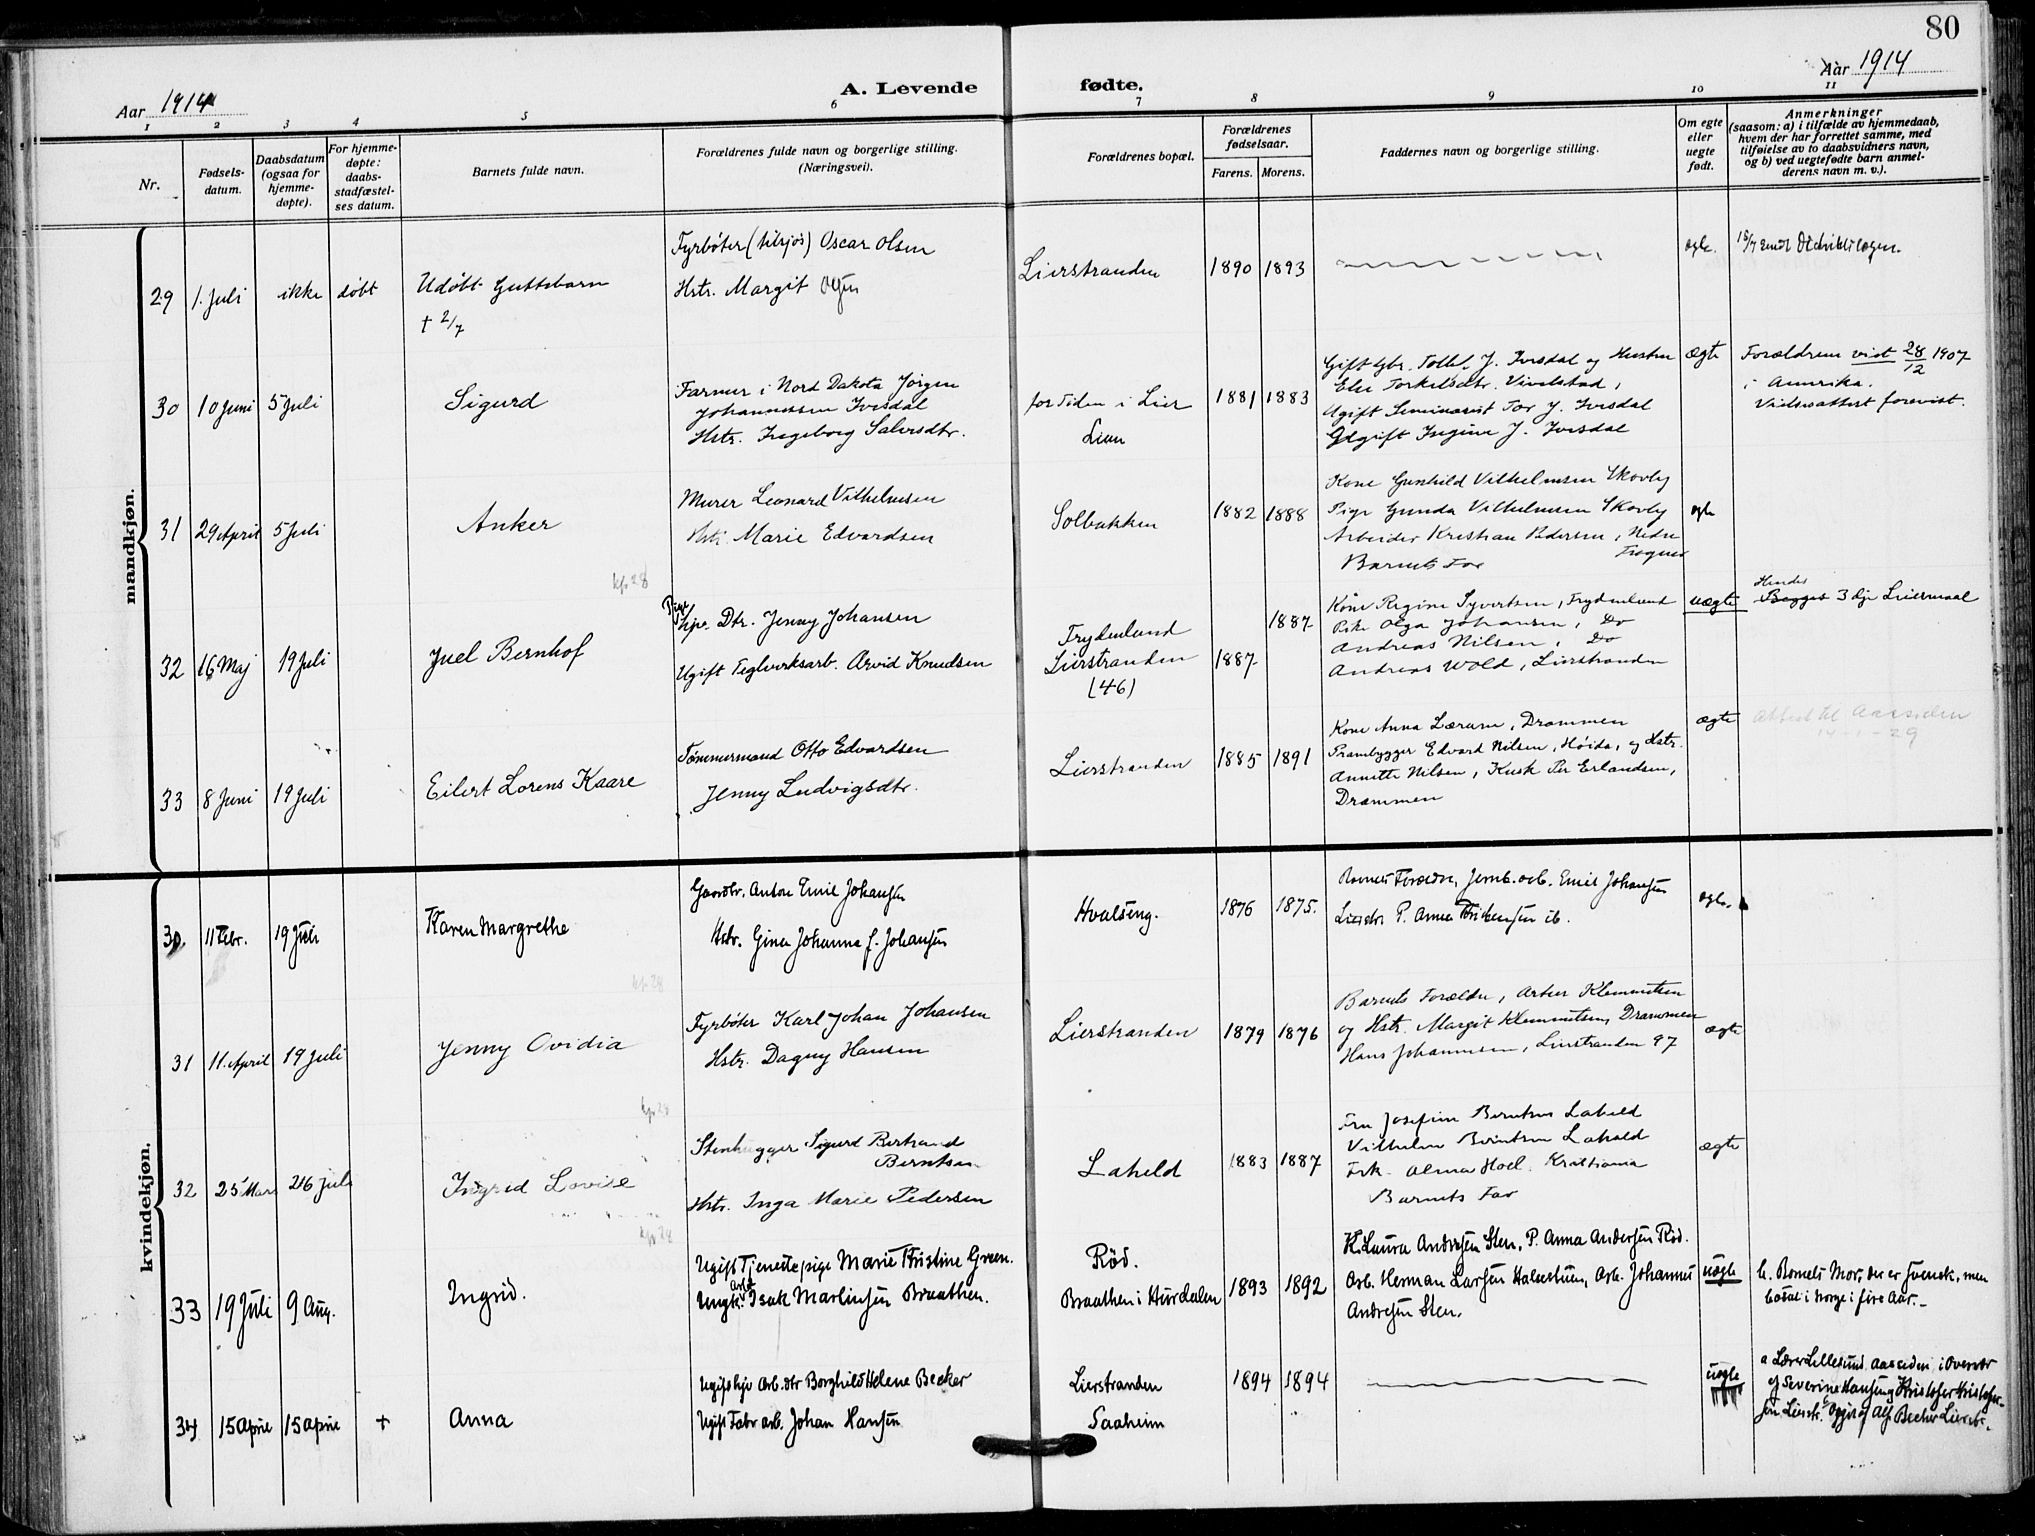 80
Aar 1914
A. Levende
fødte.
Aar 1914
1 2 3 4 5 6 7 8 9 10 11
Nr.
Fødsels-
datum.
Daabsdatum
(ogsaa for
hjemme-
døpte).
For hjemme-
døpte:
daabs-
stadfæstel-
ses datum.
Barnets fulde navn.
Forældrenes fulde navn og borgerlige stilling.
(Næringsvei).
Forældrenes bopæl.
Forældrenes
fødselsaar.
Farens. Morens.
Faddernes navn og borgerlige stilling.
Om egte
eller
uegte
født.
Anmerkninger
(saasom: a) i tilfælde av hjemmedaab,
hvem der har forrettet samme, med
tilføielse av to daabsvidners navn,
og b) ved uegtefødte barn anmel-
derens navn m. v.).
mandkjøn.
29 1. Juli ikke døbt Udøbt Guttebarn
† 2/7
Fyrbøter (tilsjøs) Oscar Olsen
Hstr. Margit
Lierstranden 1890 1893
30 10 Juni 5 Juli Sigurd
Farmer i Nord Dakota Jørgen
Johannessen Ivesdal
Hstr. Ingeborg Salvesdtr.
for Tiden i Lier
Lien
1881 1883
Gift Gbr. J. Ivesdal og Hustru
Else Torkelsdtr. Vivelstad,
Ugift Seminarist Tor J. Ivesdal
Ugift J. Ivesdal
ægte
Forældrene viet 28/12 1907
i Amerika.
Vielsesattest forevist.
31 29 April 5 Juli Anker
Murer Leonard Vilhelmsen
Hstr Marie Edvardsen
Solbakken 1882 1888
Kone Gunhild Vilhelmsen Skovly
Pige Gunda Vilhelmsen Skovly
Arbeider Kristian Pedersen, Nedre
Frogner
Barnets Far
kp 28
32 16 Maj 19 Juli Juel Bernhof
Pige
Hjv. Dtr. Jenny Johansen
Ugift Teglverksarb. Arvid Knudsen
Frydenlund
Lierstranden
(46)
1887
1887
Kone Regine Syvertsen, Frydenlund
Pike Olga Johansen, Do
Andreas Nilsen, Do
Andreas Wold, Lierstranden
uægte
Hendes
Begges 3dje Leiermaal
33 8 Juni 19 Juli Eilert Lorens Kaare
Tømmermand Otto Edvardsen
Jenny Ludvigsdtr.
Lierstranden 1885 1891
Kone Anna Lærum, Drammen
Prambygger Edvard Nilsen, Høida, og Hstr.
Annette Nilsen, Kusk Per Erlandsen,
Drammen
ægte
Attest til Aassiden
14-1-29
kvindekjøn.
30. 11 Febr. 19 Juli Karen Margrethe
Gaardbr. Anton Emil Johansen
Hstr. Gina Johanna f. Johansen
Hvalseng. 1876 1875.
Barnets Forældre, Jernb. arb. Emil Johansen
Lierstr. P. Anna Kristensen ib.
kp 28
31 11. April 19 Juli Jenny Ovidia
Fyrbøter Karl Johan Johansen
Hstr. Dagny Hansen
Lierstranden 1879 1876
Barnets Forældre, Artur Klemmetsen
og Hstr. Margit Klemmetsen, Drammen
Hans Johannesen, Lierstranden 97
ægte
kp 28
32 25 Mars 26 Juli Ingrid Lovise
Stenhugger Sigurd Bertrand
Berntsen
Hstr. Inga Marie Pedersen
Laheld 1883 1887
Fru Josefine Berntsen Laheld
Vilhelm Berntsen Laheld
Frk. Alma Hoel. Kristiania
Barnets Far
ægte
kp 28
33 19 Juli 9 Aug. Ingrid.
Ugift Tjenestepige Marie Kristine Green.
Arb.
Ungk. Isak Martinsen Braathen.
Rød.
Braathen i Hurdalen
1893 1892
K. Laura Andresen Sten, P. Anna Andersen Rød.
Arb. Herman Larsen Halvestuen, Arb. Johannes
Andresen Sten.
uægte
b. Barnets Mor, der er svensk, men
bosat i Norge i fire Aar.
34 15 April 15 April + Anna
Ugift hjv Arb. dtr Borghild Helene Becker
Ugift Fabr arb. Johan Hansen
Lierstranden
Saaheim
1894 1894
uægte
a Lærer Lillesund Aassiden i Overvær
af Severine Hansen og Kristofer Kristofer-
sen Lierstr. Opgiv af Alf Becker Lierstr.